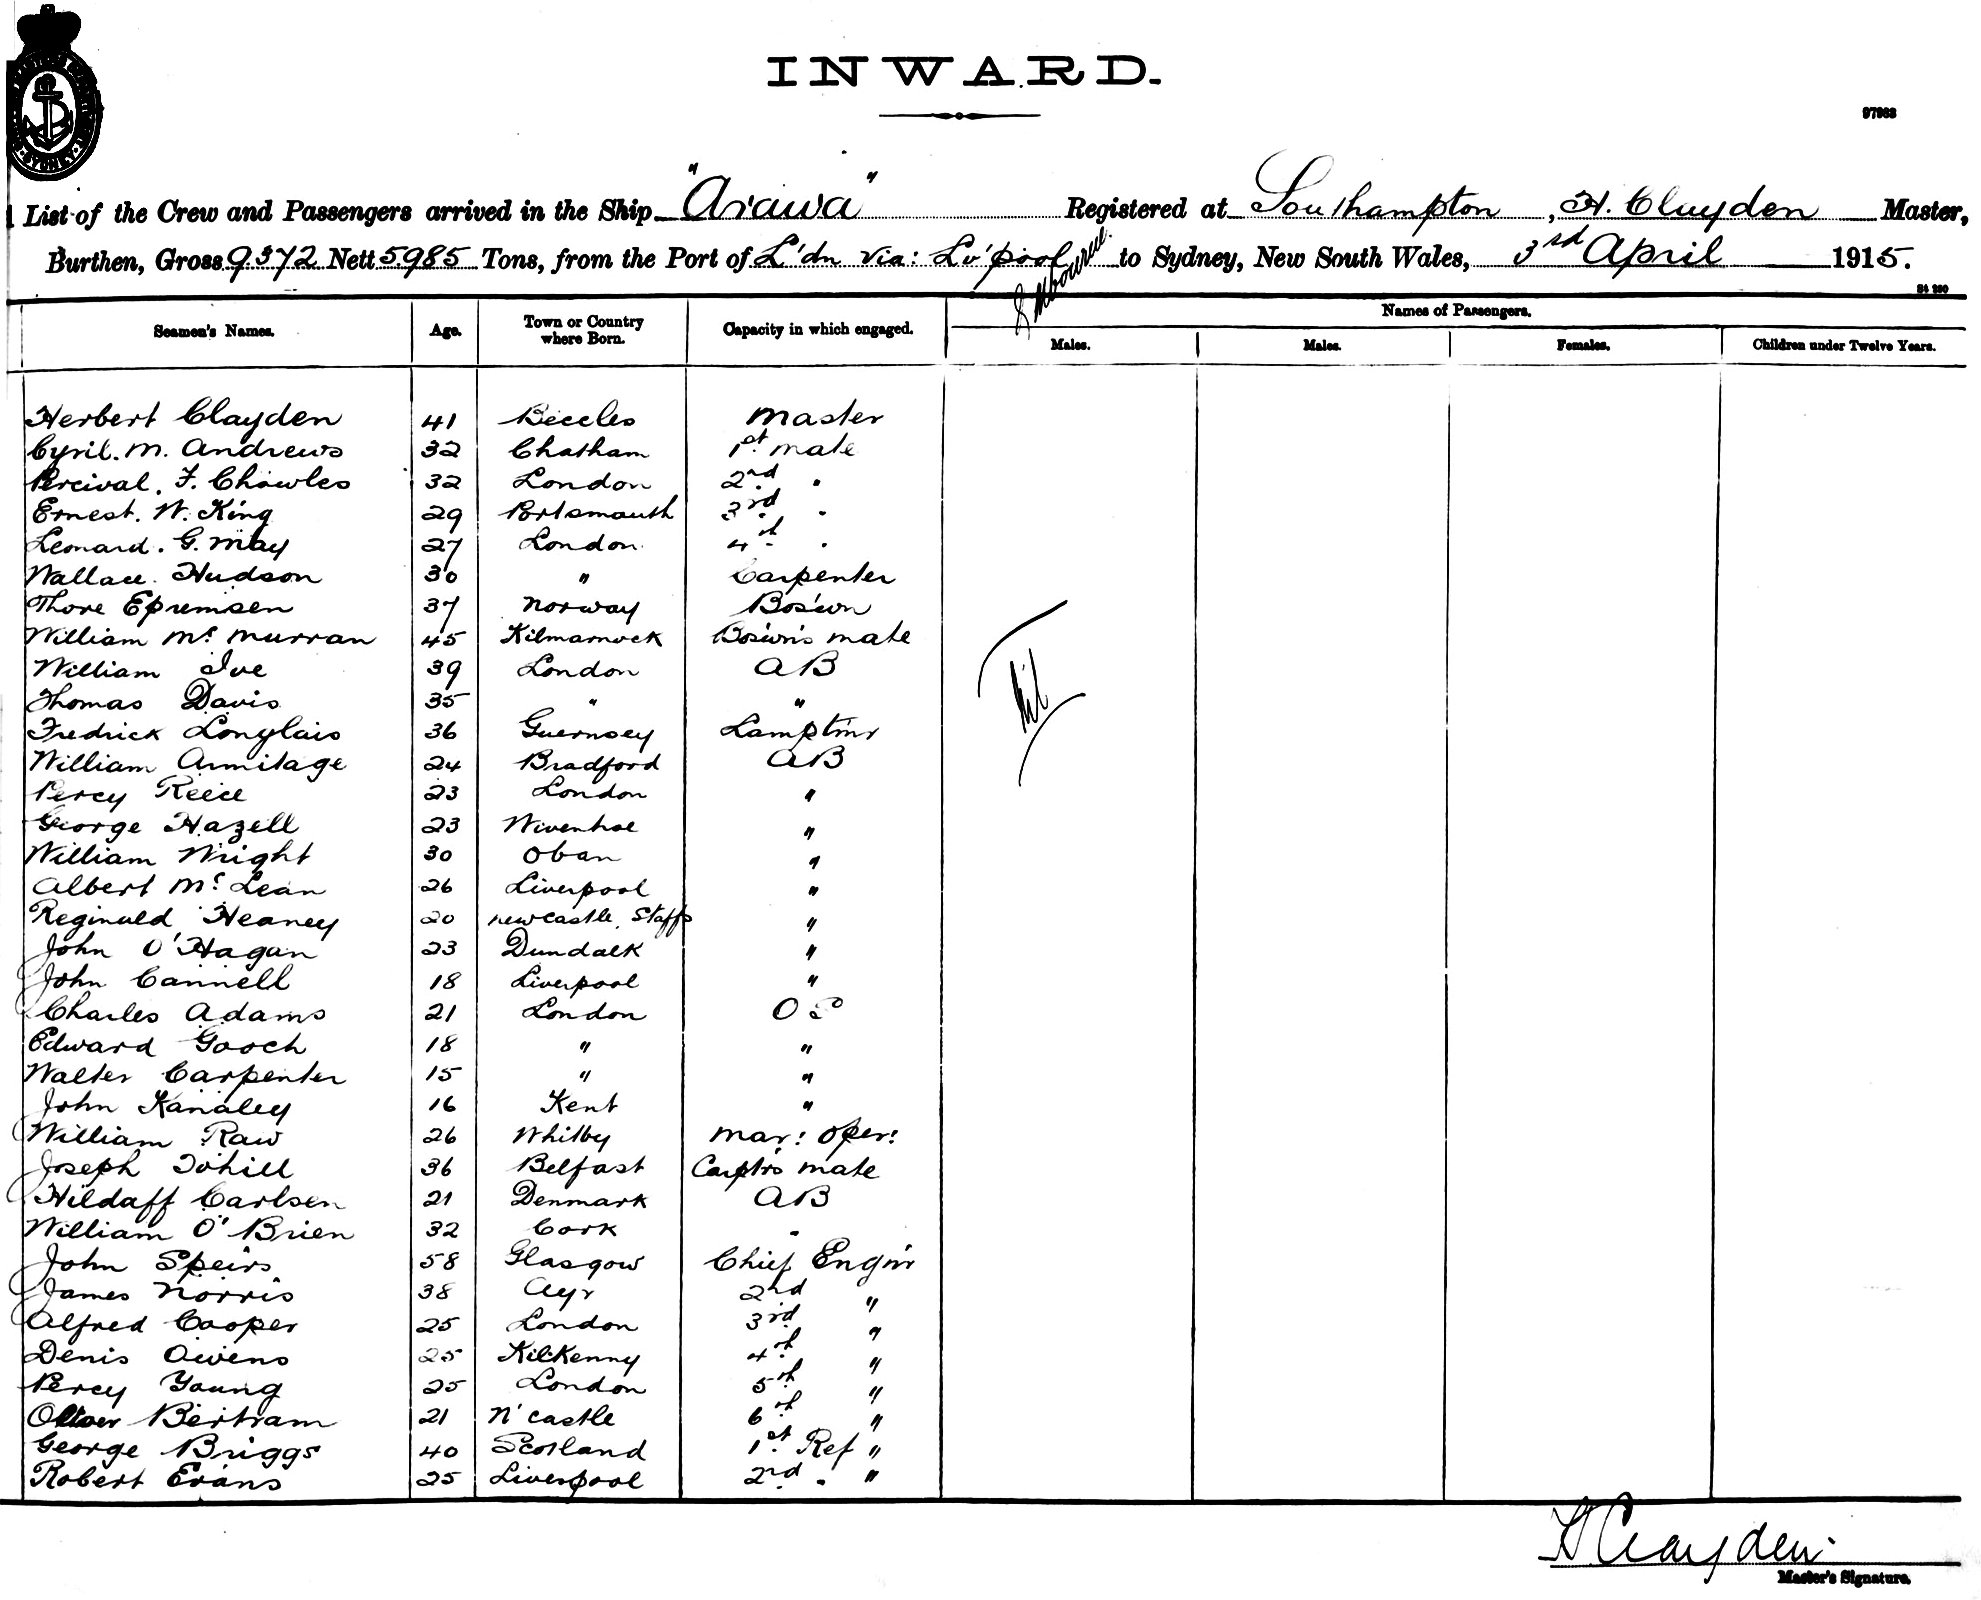 INWARD.
97963
List of the Crew and Passengers arrived in the Ship "Arawa" Registered at Southampton, H. Clayden Master,
Burthen, Gross 9372 Nett 5985 Tons, from the Port of L'dn via: Lv'pool & Mbourne to Sydney, New South Wales, 3rd April 1915.
Seamen's Names. Age. Town or Country where Born. Capacity in which engaged. Names of Passengers.
Males. Males. Females. Children under Twelve Years.
Herbert Clayden 41 Beccles Master
Cyril. M. Andrews 32 Chatham 1st mate
Percival. F. Chowles 32 London 2nd "
Ernest. W. King 29 Portsmouth 3rd "
Leonard. G. May 27 London 4th "
Wallace Hudson 30 " Carpenter
Thore Epremsen 37 Norway Bos'wn
William Mc Murran 45 Kilmarnock Bos'wn's mate
William Ive 39 London AB
Thomas Davis 35 " "
Fredrick Longlais 36 Guernsey Lamptmr
William Armitage 24 Bradford AB
Percy Reece 23 London "
George Hazell 23 Wivenhoe "
William Wright 30 Oban "
Albert Mc Lean 26 Liverpool "
Reginald Heaney 20 Newcastle, Staffs "
John O'Hagan 23 Dundalk "
John Cannell 18 Liverpool "
Charles Adams 21 London OS
Edward Gooch 18 " "
Walter Carpenter 15 " "
John Kanaley 16 Kent "
William Raw 26 Whitby Mar: Oper:
Joseph Tohill 36 Belfast Carptr's mate
Hildaff Carlsen 21 Denmark AB
William O'Brien 32 Cork "
John Speirs 58 Glasgow Chief Engin'r
James Norris 38 Ayr 2nd "
Alfred Cooper 25 London 3rd "
Denis Owens 25 Kilkenny 4th "
Percy Young 25 London 5th "
Oliver Bertram 21 N'castle 6th "
George Briggs 40 Scotland 1st Ref "
Robert Evans 25 Liverpool 2nd " "
Nil
H Clayden
Master's Signature.